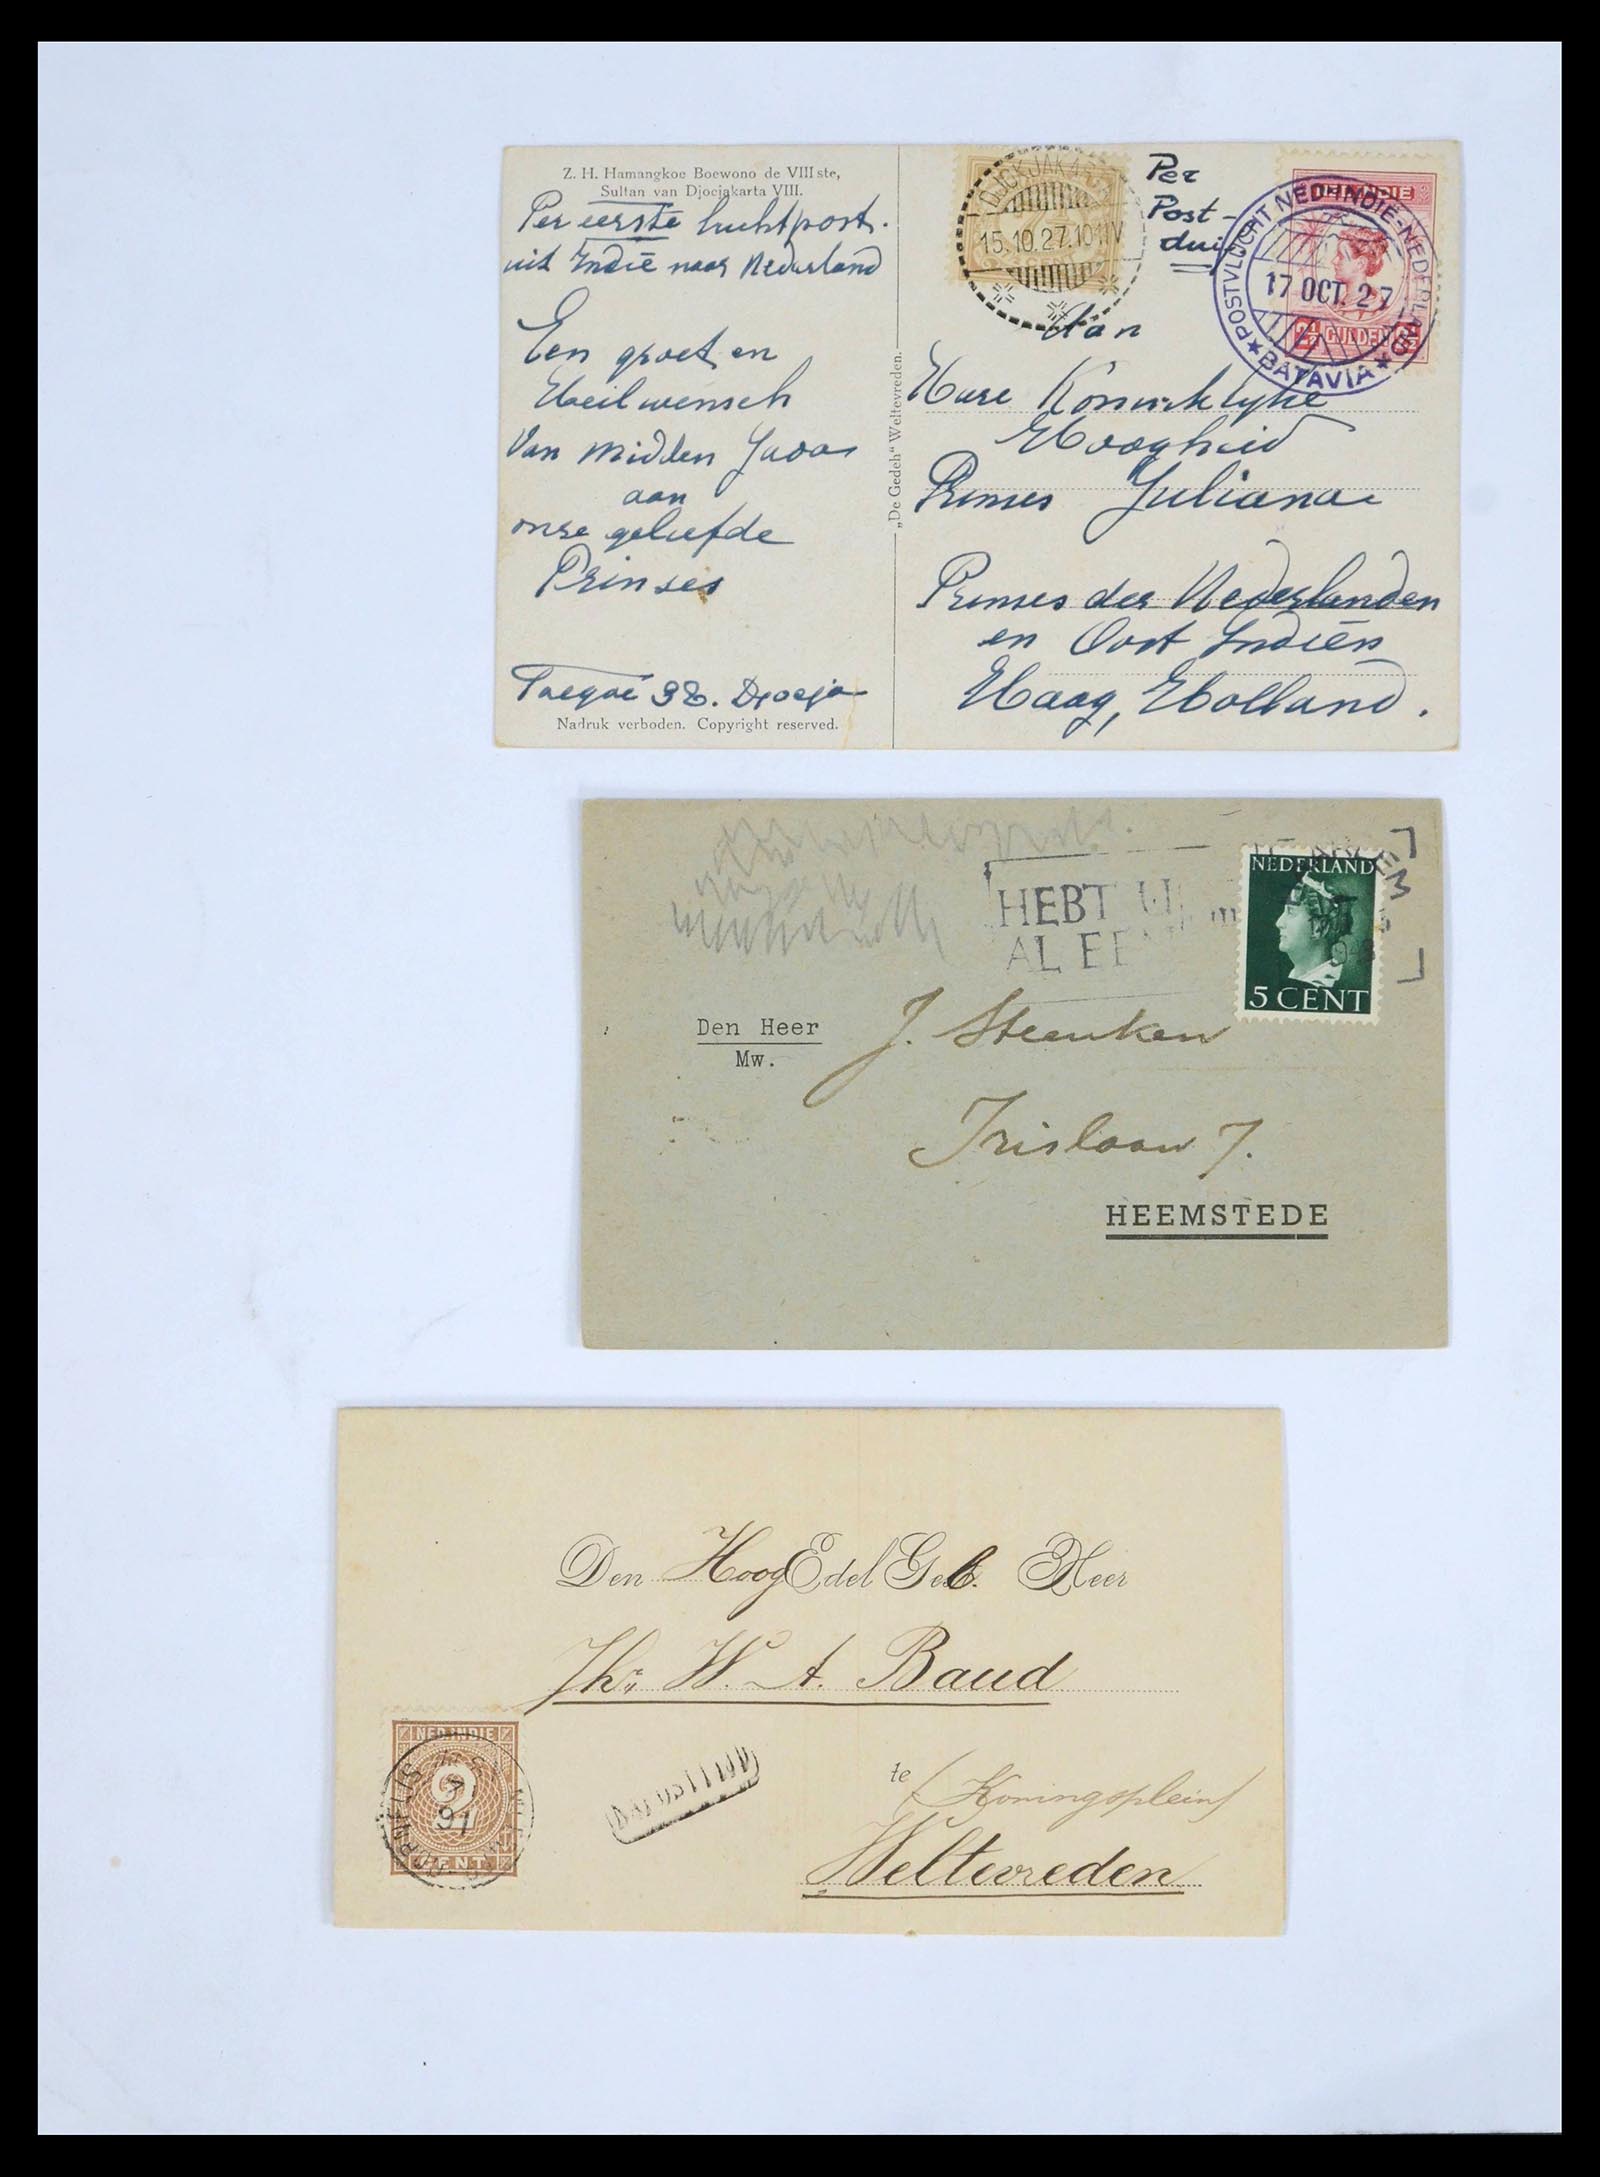 Z. H. Hamangkoe Boewono de VIIIste,
Sultan van Djocjakarta VIII.
Per eerste luchtpost.
uit Indië naar Nederland
Een groet en
Heilwensch
Van Midden Java
aan
onze geliefde
Prinses
38. Djocja
Nadruk verboden. Copyright reserved.
„De Gedeh" Weltevreden.
DJOKJAKARTA
15.10.27.10-11V
Per
Post-
duif
NED-INDIE
2½ GULDEN 2½
POSTVLUCHT NED-INDIE-NEDERLAND
17 OCT. 27
★ BATAVIA ★
Aan
Hare Koninklijke
Hoogheid
Prinses Juliana
Prinses der Nederlanden
en Oost Indiën
Haag, Holland.
HEBT U
AL EEN
NEDERLAND
5 CENT
Den Heer
Mw.
J. Steenken
Irislaan 7.
HEEMSTEDE
Den HoogEdelGeb. Heer
Jhr W. A. Baud
te (Koningsplein)
Weltevreden
NED-INDIE
2
CENT
91
NAPOSTTIJD